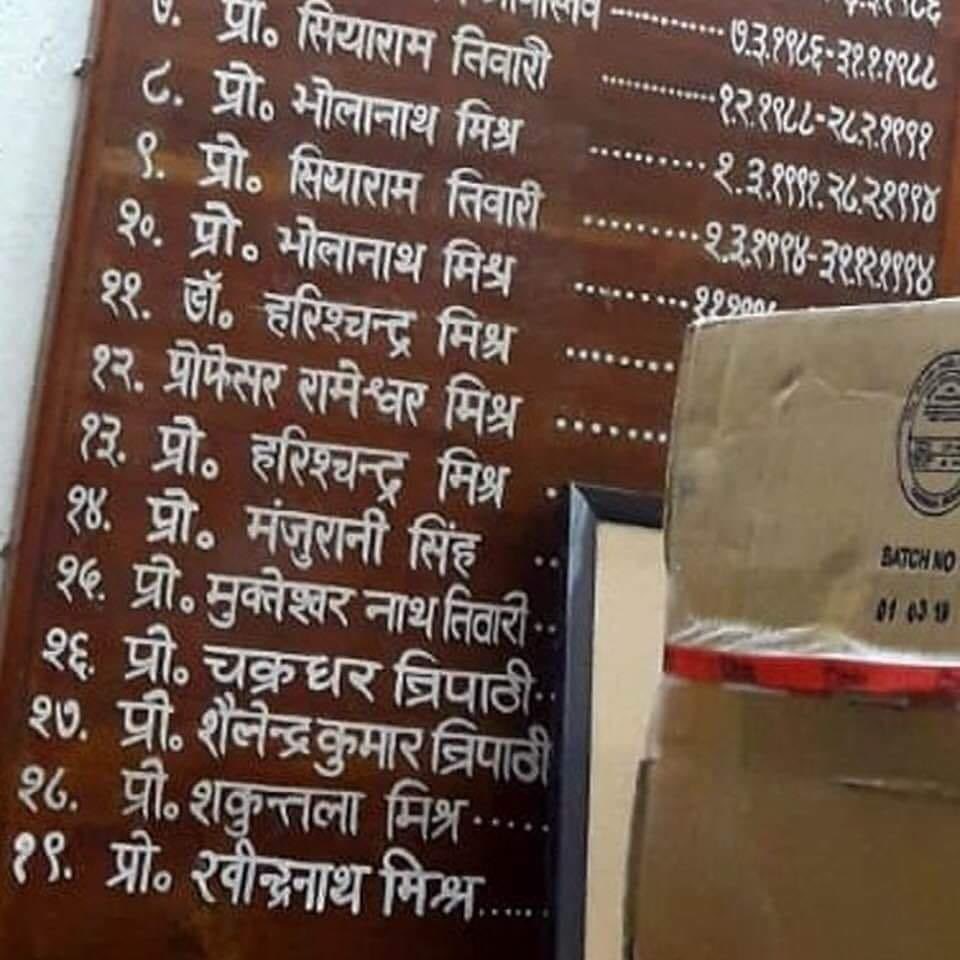 ७. प्रो० सियाराम तिवारी ............ ७.३.१९८६-३१.१.१९८८
८. प्रो० भोलानाथ मिश्र ............ १.२.१९८८-२८.२.१९९१
९. प्रो० सियाराम तिवारी .......... १.३.१९९१.२८.२१९९४
१०. प्रो० भोलानाथ मिश्र .......... १.३.१९९४-३१.१२.१९९४
११. डॉ० हरिश्चन्द्र मिश्र ..........
१२. प्रोफेसर रामेश्वर मिश्र ........
१३. प्रो० हरिश्चन्द्र मिश्र .
१४. प्रो० मंजुरानी सिंह ..
१५. प्रो० मुक्तेश्वर नाथ तिवारी ..
१६. प्रो० चक्रधर त्रिपाठी ..
१७. प्रो० शैलेन्द्र कुमार त्रिपाठी
१८. प्रो० शकुन्तला मिश्र .....
१९. प्रो० रवीन्द्रनाथ मिश्र .....
BATCH NO
01 03 19